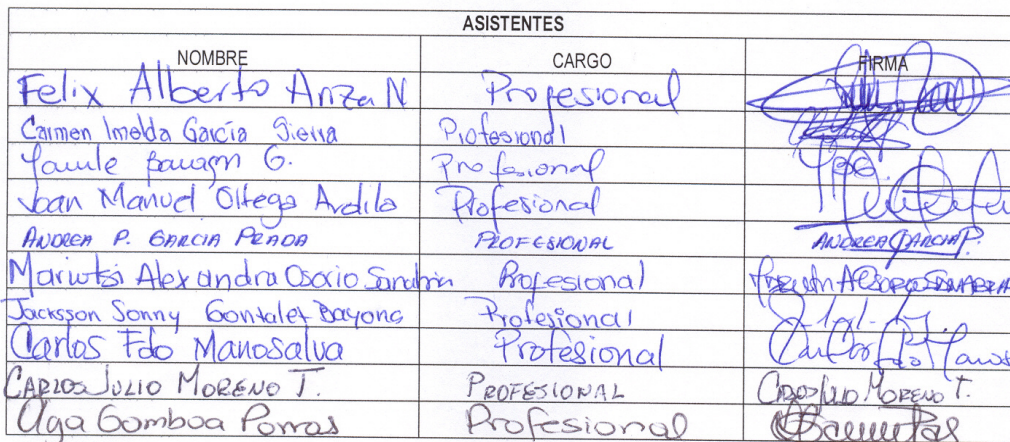 ASISTENTES
NOMBRE CARGO FIRMA
Felix Alberto Ariza N Profesional
Carmen Imelda García Sierra Profesional
Profesional
Joan Manuel Ortega Ardila Profesional
ANDREA P. GARCIA PRADA PROFESIONAL ANDREA GARCIA P.
Alexandra Osorio Sanabria Profesional
Jacksson Sonny Gonzalez Bayona Profesional
Carlos Fdo Manosalva Profesional Carlos Fdo Manos
CARLOS JULIO MORENO T. PROFESIONAL CARLOS JULIO MORENO T.
Olga Gamboa Porras Profesional